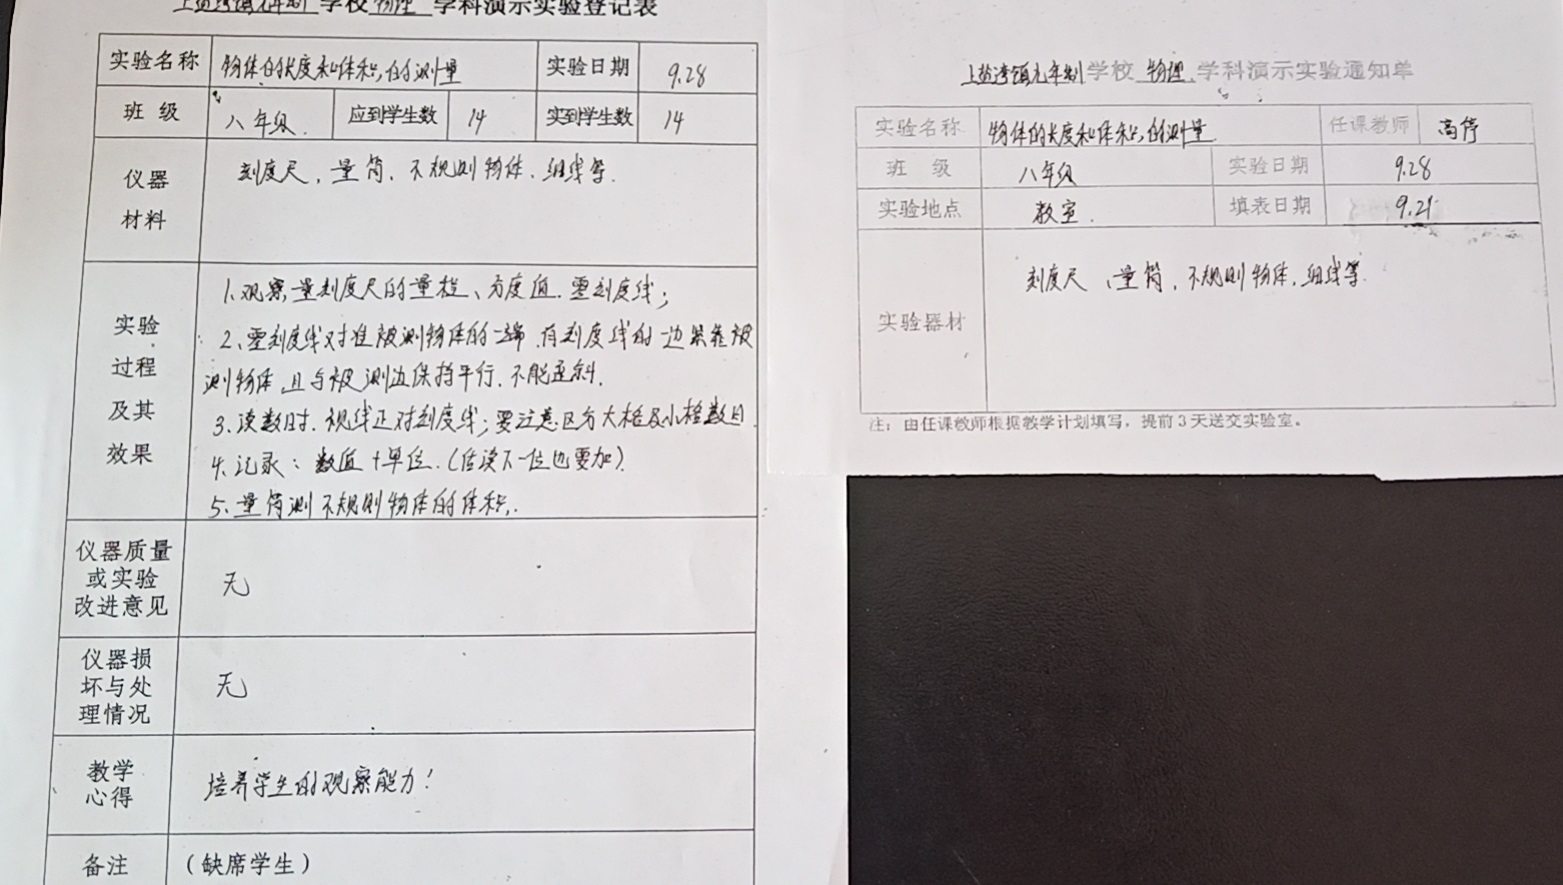 上盐湾镇九年制学校 物理 学科演示实验登记表
实验名称 物体的长度和体积的测量 实验日期 9.28
班 级 八年级. 应到学生数 14 实到学生数 14
仪器材料 刻度尺、量筒、不规则物体、细线等.
实验过程及其效果
1、观察量刻度尺的量程、分度值.零刻度线;
2、零刻度线对准被测物体的一端.有刻度线的一边紧靠被
测物体.且与被测边保持平行.不能歪斜.
3、读数时.视线正对刻度线;要注意区分大格及小格数目.
4、记录: 数值+单位.(估读下一位也要加).
5、量筒测不规则物体的体积.
仪器质量或实验改进意见 无
仪器损坏与处理情况 无
教学心得 培养学生的观察能力!
备注 (缺席学生)
上盐湾镇九年制学校 物理 学科演示实验通知单
实验名称 物体的长度和体积的测量 任课教师 高停
班 级 八年级 实验日期 9.28
实验地点 教室. 填表日期 9.21
实验器材 刻度尺、量筒、不规则物体、细线等.
注: 由任课教师根据教学计划填写, 提前3天送交实验室。